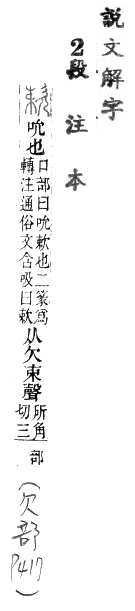 說文解字
2段注本
欶
吮也口部曰吮欶也二篆爲轉注通俗文含吸曰欶从欠束聲所角切三部
(欠部P417)